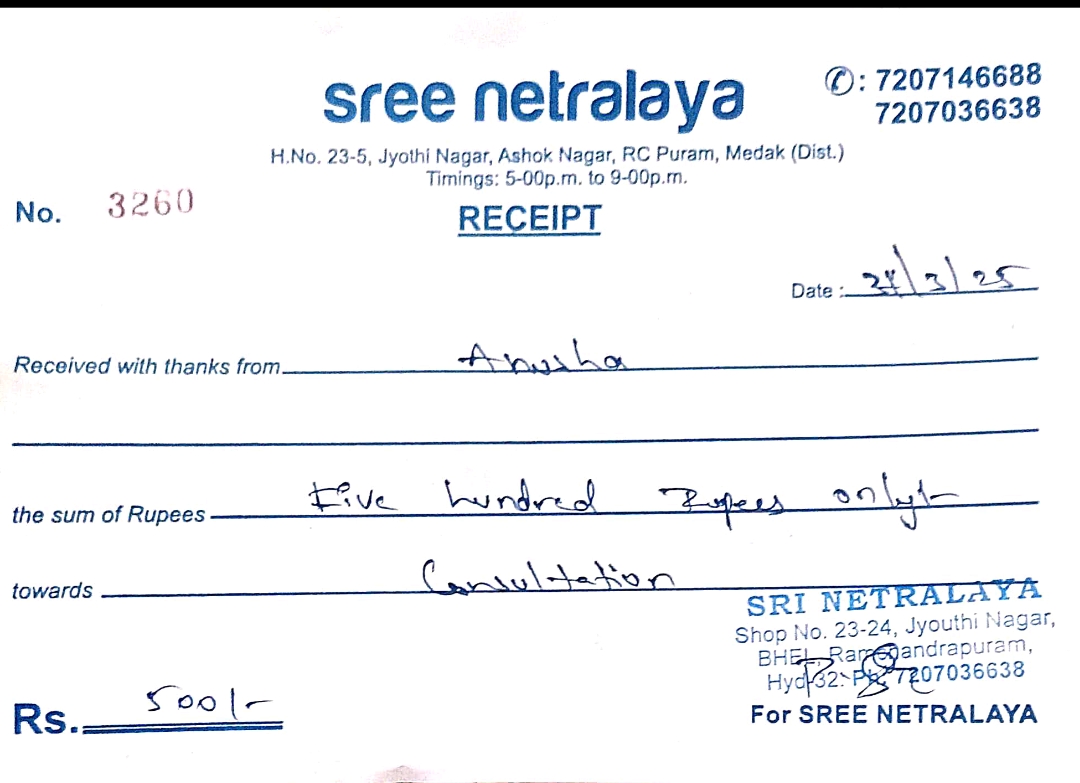 sree netralaya
✆: 7207146688
7207036638
H.No. 23-5, Jyothi Nagar, Ashok Nagar, RC Puram, Medak (Dist.)
Timings: 5-00p.m. to 9-00p.m.
No. 3260
RECEIPT
Date : /3/25
Received with thanks from Anusha
the sum of Rupees Five hundred Rupees only/-
towards Consultation
SRI NETRALAYA
Shop No. 23-24, Jyouthi Nagar,
BHEL, Ramchandrapuram,
Hyd-32. Ph: 7207036638
Rs. 500/-
For SREE NETRALAYA